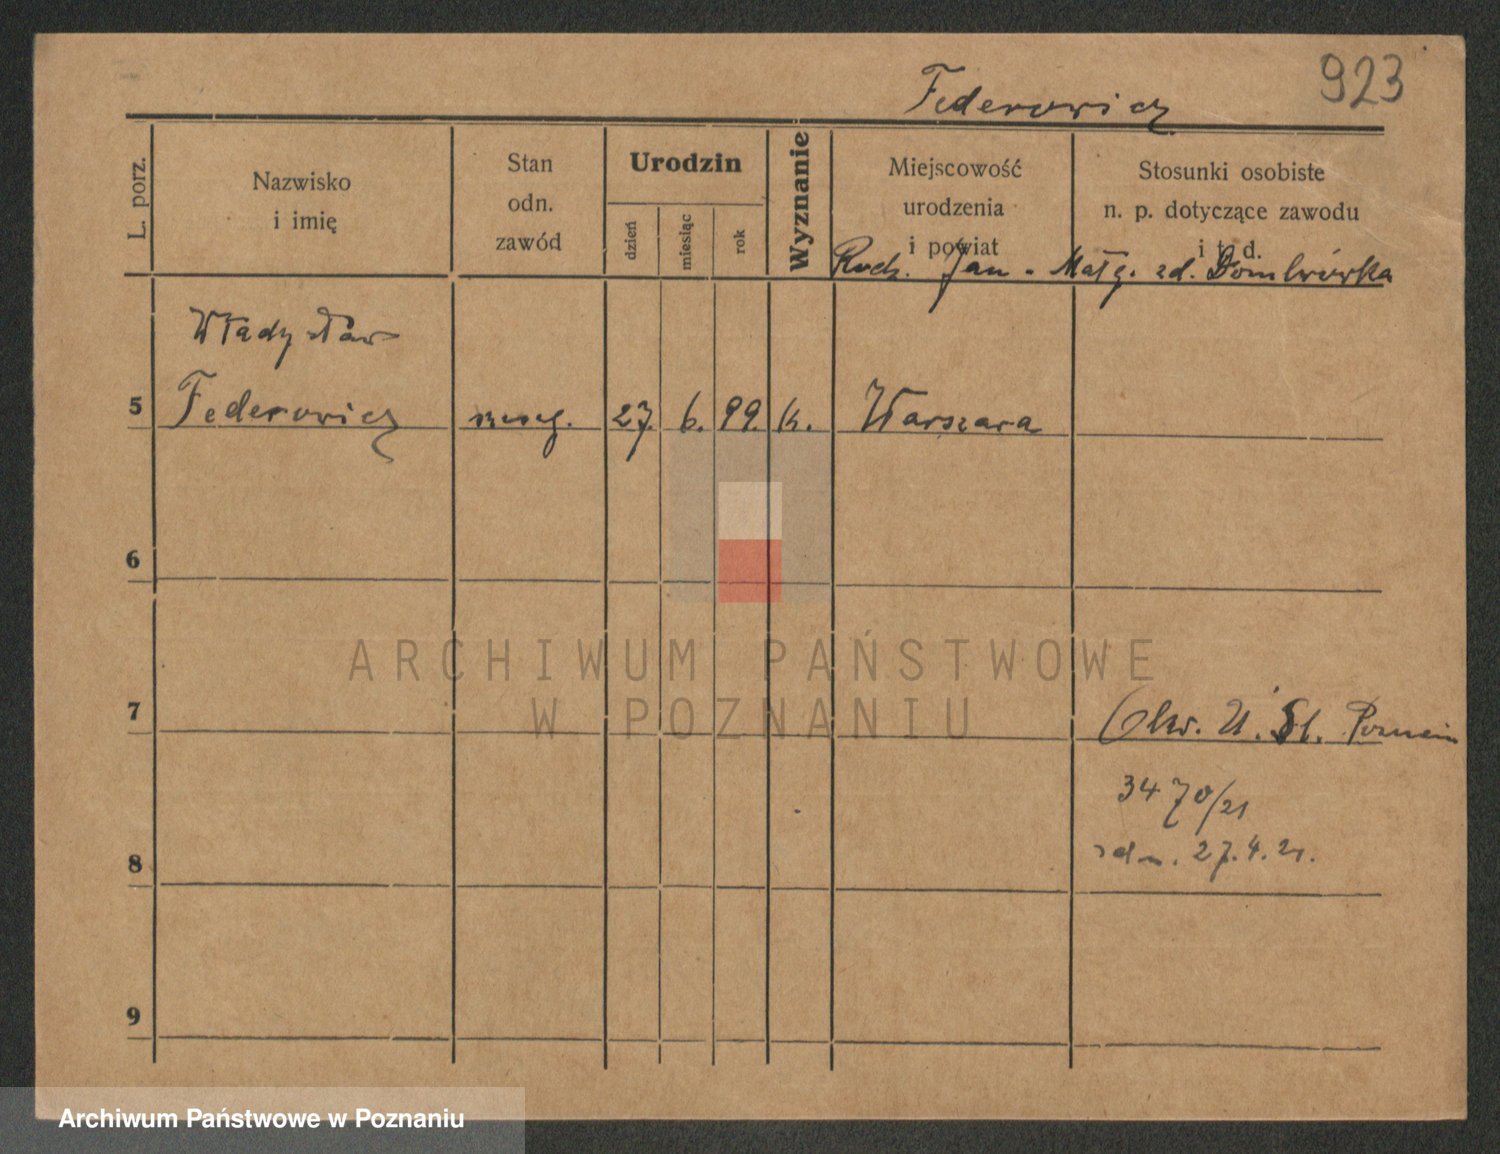 923
Federowicz
L. porz.
Nazwisko
i imię
Stan
odn.
zawód
Urodzin
dzień
miesiąc
rok
Wyznanie
Miejscowość
urodzenia
i powiat
Stosunki osobiste
n. p. dotyczące zawodu
i t. d.
Rodz. Jan - Małg. zd. Dombrówka
Władysław
5 Federowicz 27. 6. 99. k. Warszawa
6
ARCHIWUM PAŃSTWOWE
W POZNANIU
7 U. St. Poznań
3470/21
27.4.21.
8
9
Archiwum Państwowe w Poznaniu